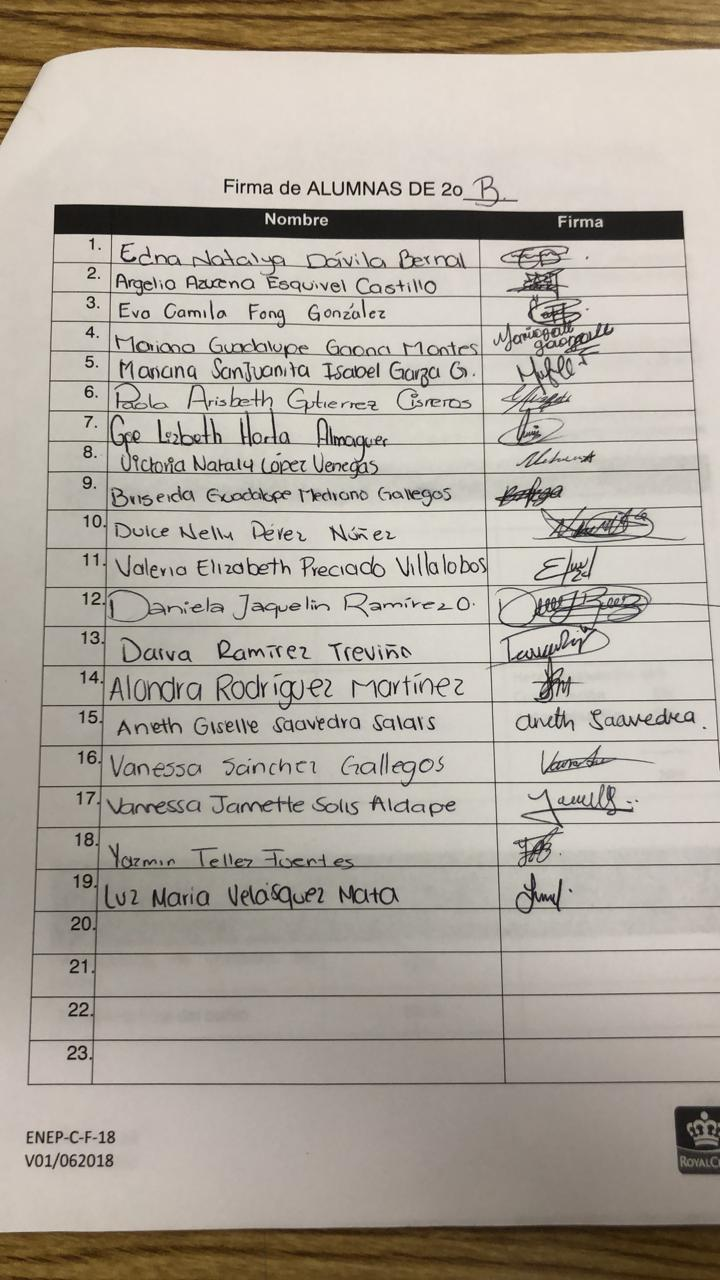 Firma de ALUMNAS DE 2o B.
Nombre Firma
1. Edna Natalya Dávila Bernal
2. Argelia Azucena Esquivel Castillo
3. Eva Camila Fong González
4. Mariana Guadalupe Gaona Montes
5. Mariana SanJuanita Isabel Garza G.
6. Paola Arisbeth Gutierrez Cisneros
7. Gpe Lizbeth Horta Almaguer
8. Victoria Nataly López Venegas
9. Briseida Guadalupe Medrano Gallegos
10. Dulce Nelly Pérez Núñez
11. Valeria Elizabeth Preciado Villalobos
12. Daniela Jaquelin Ramírez O.
13. Ramírez Treviño
14. Alondra Rodríguez Martínez
15. Aneth Giselle Saavedra Salais aneth Saavedra.
16. Vanessa Sánchez Gallegos
17. Vannessa Jannette Solis Aldape
18. Yazmin Tellez Fuentes
19. Luz Maria Velásquez Mata
20.
21.
22.
23.
ENEP-C-F-18
V01/062018